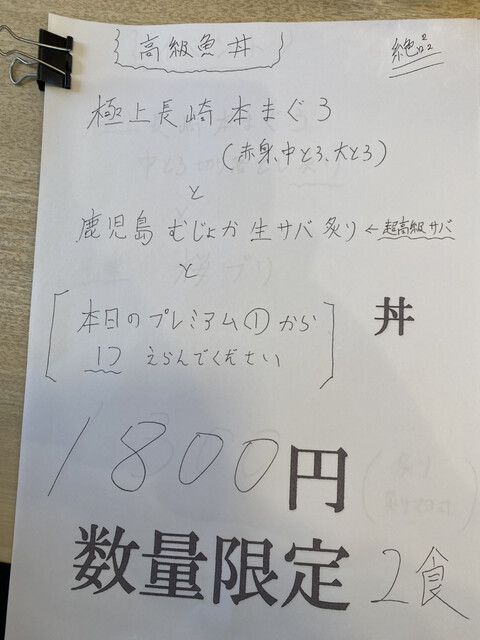 高級魚丼
絶品
極上長崎本まぐろ
(赤身、中とろ、大とろ)
と
鹿児島 むじょか 生サバ 炙り ←超高級サバ
と
本日のプレミアム①から
1つ えらんでください
丼
1800円
数量限定 2食